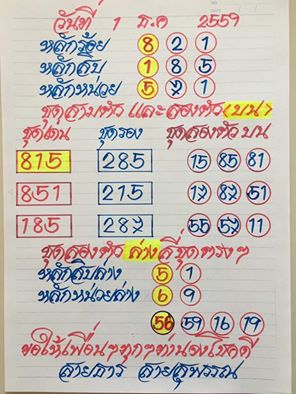 วันที่ 1 ธ.ค 2559
หลักร้อย 8 2 1
หลักสิบ 1 8 5
หลักหน่วย 5 7 1
ชุดสามตัว และสองตัว (บน)
ชุดเด่น ชุดรอง ชุดสองตัว บน
815 285 15 85 81
851 215 17 87 51
185 287 55 57 11
ชุดสองตัว ล่าง สี่ชุดตรงๆ
หลักสิบล่าง 5 1
หลักหน่วยล่าง 6 9
56 59 16 19
ขอให้เพื่อนๆทุกๆท่านจงโชคดี
สายธาร สายสุพรรณ